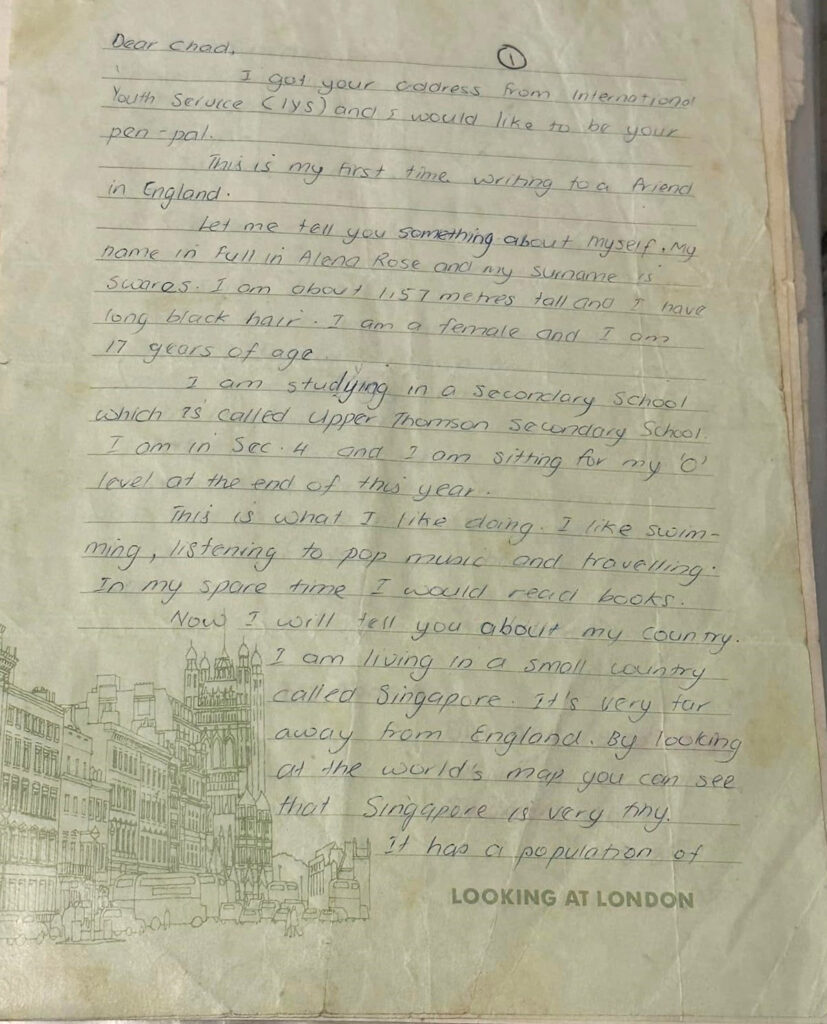 Dear Chad,
①
I got your address from International
Youth Service (IYS) and I would like to be your
pen-pal.
This is my first time writing to a friend
in England.
Let me tell you something about myself. My
name in full in Alena Rose and my surname is
Swares. I am about 1.57 metres tall and I have
long black hair. I am a female and I am
17 years of age.
I am studying in a secondary school
which is called Upper Thomson Secondary School.
I am in Sec. 4 and I am sitting for my 'O'
level at the end of this year.
This is what I like doing. I like swim-
ming, listening to pop music and travelling.
In my spare time I would read books.
Now I will tell you about my country.
I am living in a small country
called Singapore. It's very far
away from England. By looking
at the world's map you can see
that Singapore is very tiny.
It has a population of
LOOKING AT LONDON